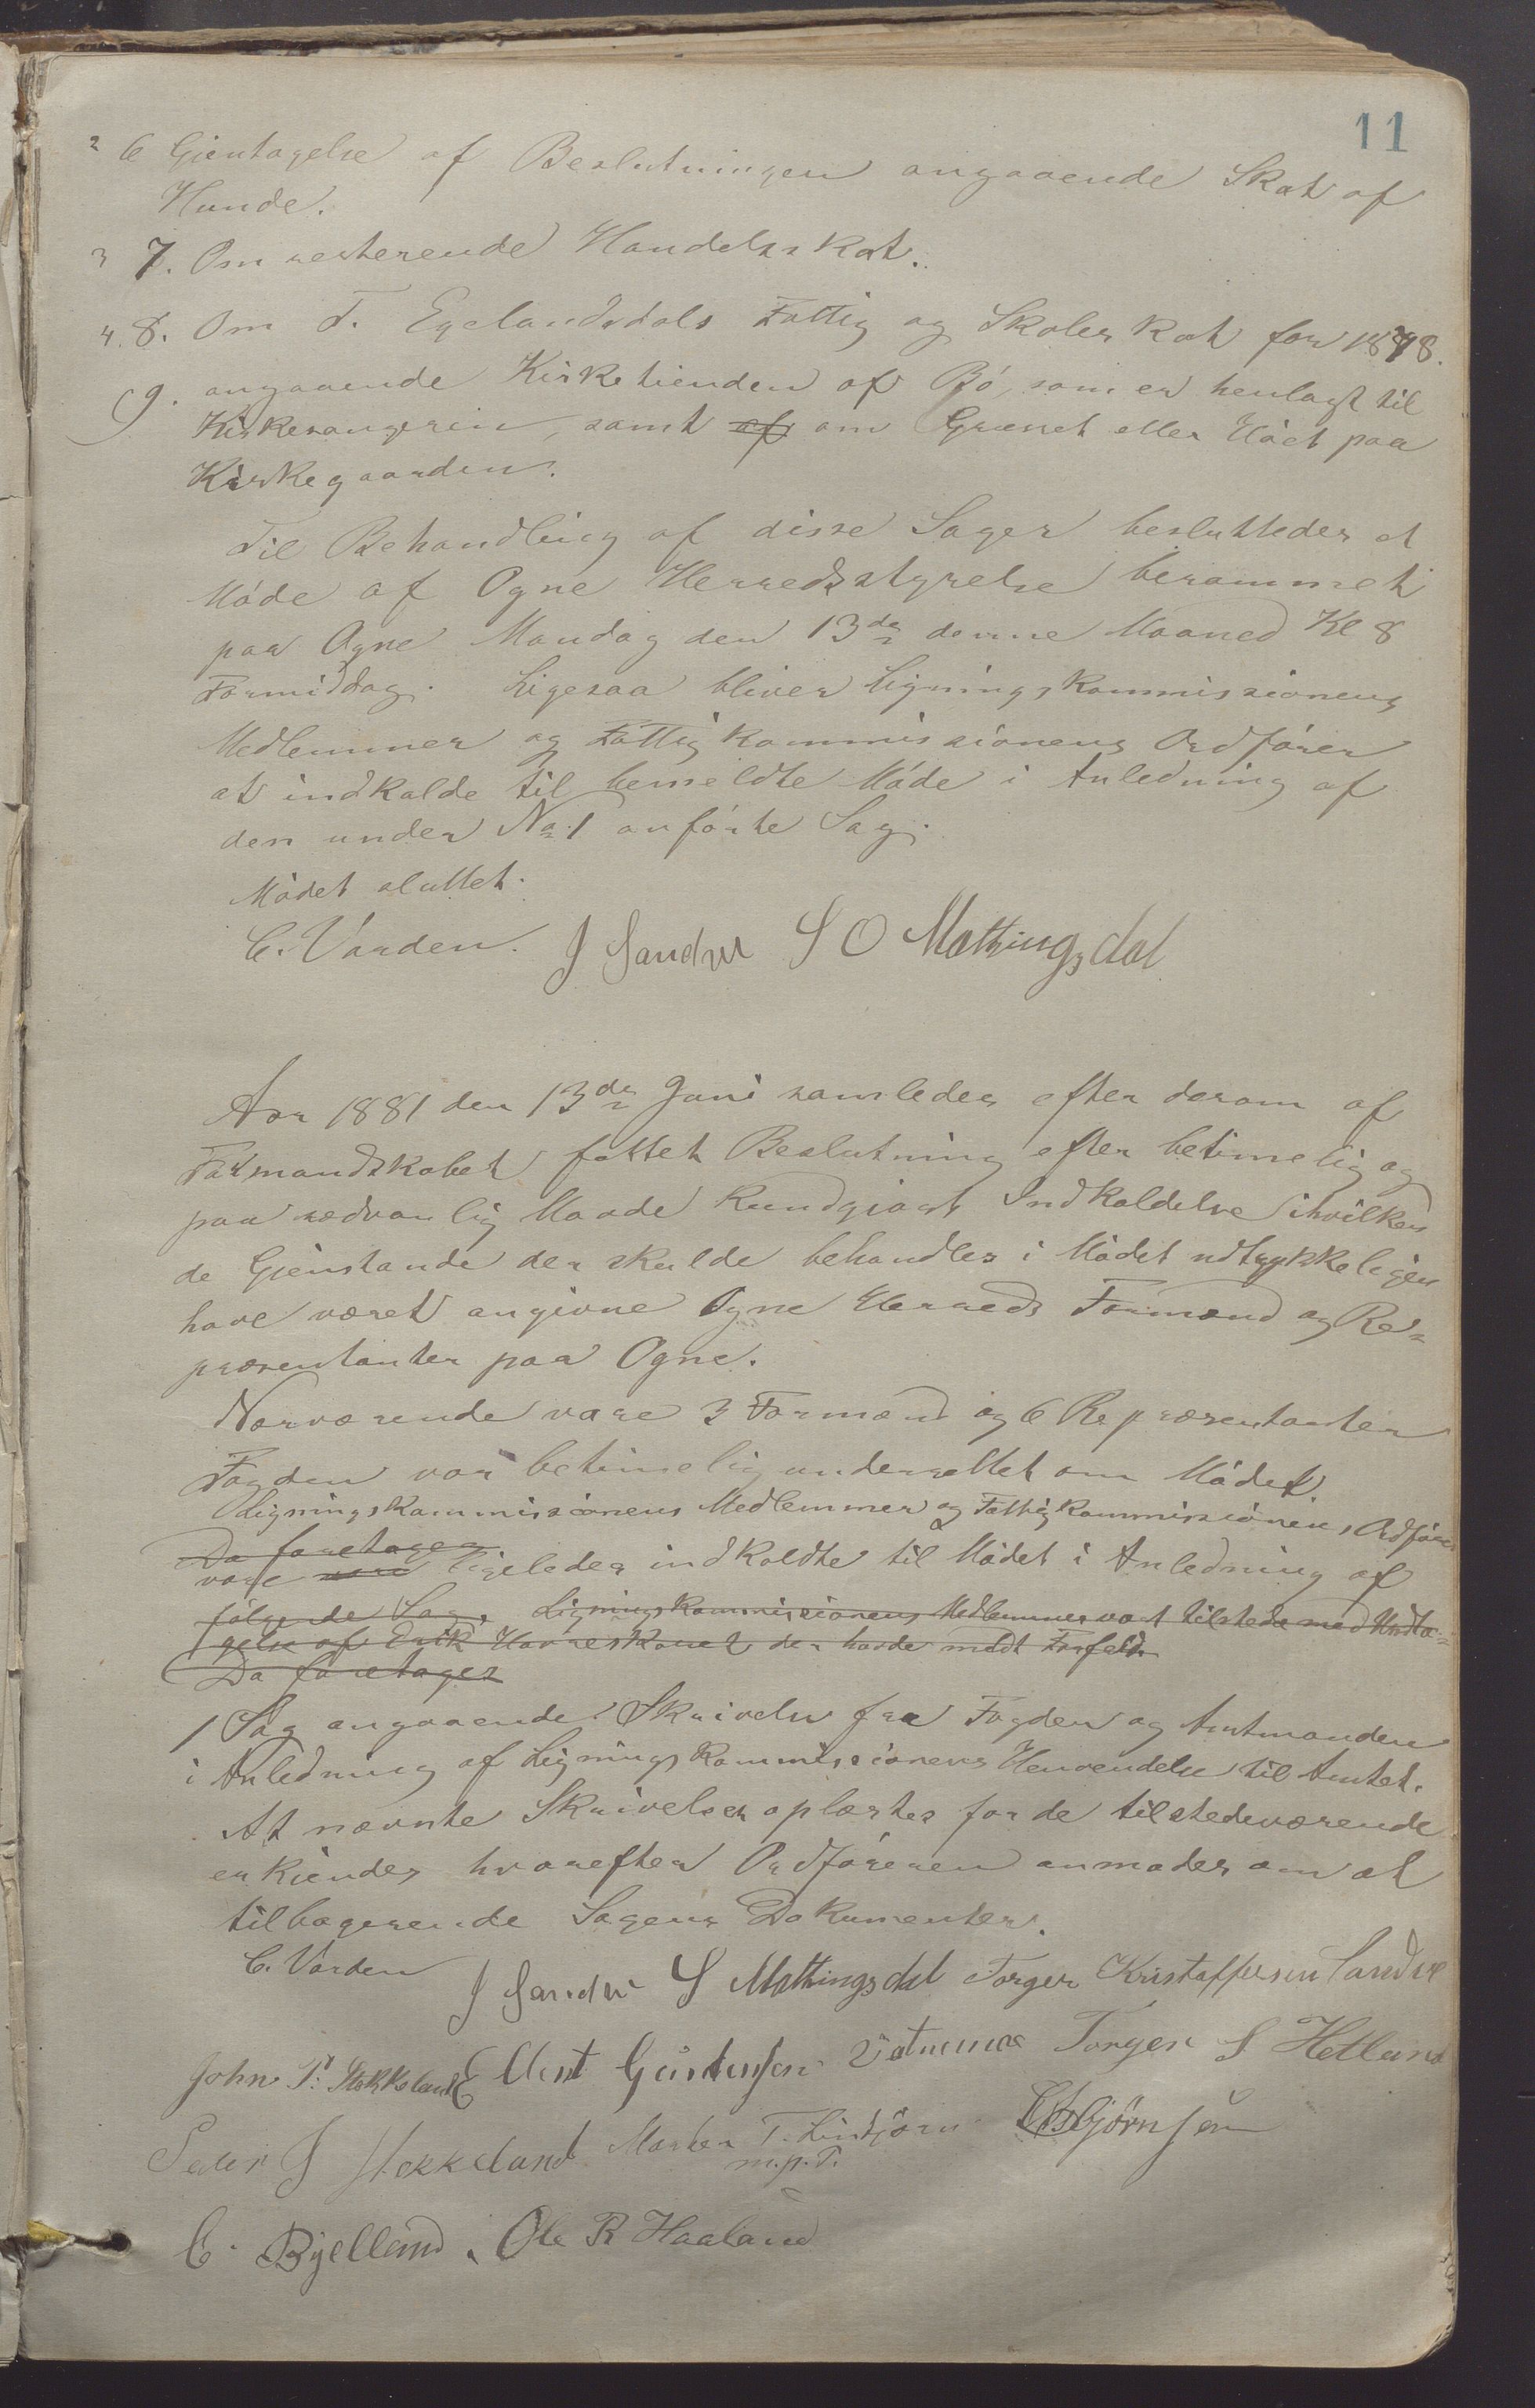 11
2 6 Gjentagelse af Beslutningen angaaende Skat af
Hunde.
3 7. Om resterende Handelsskat.
4. 8. Om T. Egelandsdals Fattig og Skoleskat for 1878.
9. angaaende Kirketienden af Bø, som er henlagt til
Kirkesangerin, samt af om Græsset eller Höet paa
Kirkegaarden.
Til Behandling af disse Sager besluttedes et
Möde af Ogne Herredsstyrelse berammet
paa Ogne Mandag den 13de denne Maaned Kl 8
Formiddag. Ligesaa bliver Ligningskommissionens
Medlemmer og Fattigkommissionens Ordförer
at indkalde til bemeldte Möde i Anledning af
den under No 1 anförte Sag.
Mödet sluttet.
C. Varden. J Sandve S O Mattingsdal
Aar 1881 den 13de Juni samledes efter derom af
Formandskabet fattet Beslutning efter betimelig og
paa sædvanlig Maade kundgjort Indkaldelse i hvilken
de Gjenstande der skulde behandles i Mödet udtrykkeligen
have været angivne Ogne Herreds Formænd og Re-
præsentanter paa Ogne.
Nærværende vare 3 Formænd og 6 Repræsentanter
Fogden var betimelig underrettet om Mödet.
Ligningskommissionens Medlemmer og Fattigkommissionens Ordförer
Da foretages
vare ligeledes indkaldte til Mödet i Anledning af
fölgende Sag. Ligningskommissionens Medlemmer var tilstede med Undta-
gelse af Erik der havde mödt Forfald.
Da foretages
1 Sag angaaende Skrivelse fra Fogden og Amtmanden
i Anledning af Ligningskommissionens Henvendelse til Amtet.
At nævnte Skrivelser oplæstes for de tilstedeværende
erkjendes hvorefter Ordföreren anmodes om at
tilbagesende Sagens Dokumenter.
C. Varden J Sandve S Mattingsdal Torger Kristoffersen Sandve
John P. Stokkeland Elert Gunder Torger S Hetland
Peder J Stokkeland Morten T. Lindtjörn Esbjörnsen
m.p.P.
C. Bjelland. Ole R Haaland